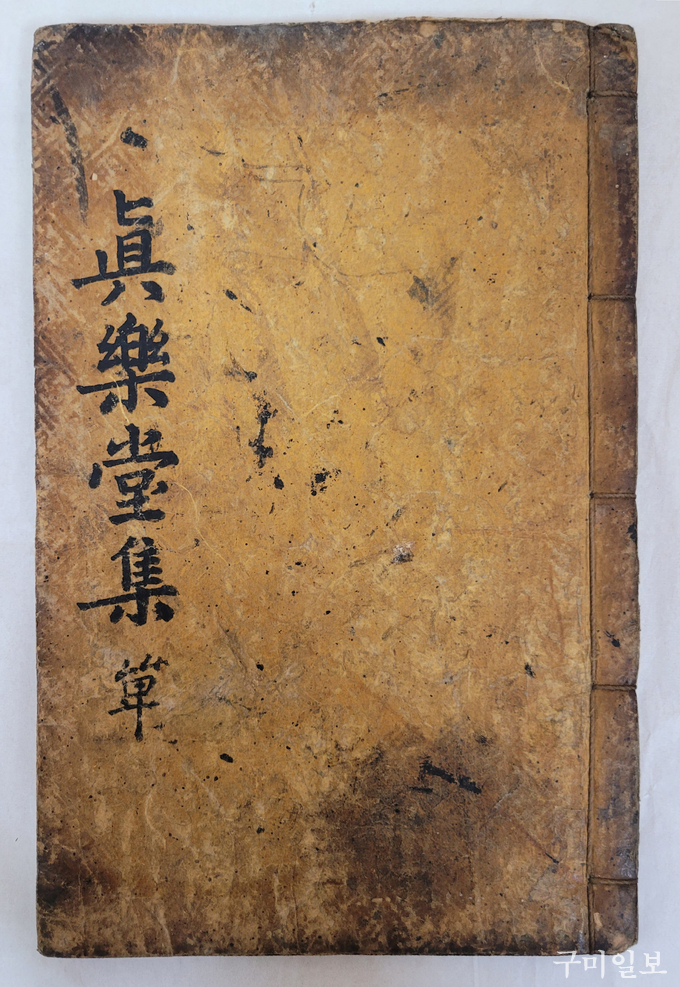 眞樂堂集 箄
구미일보